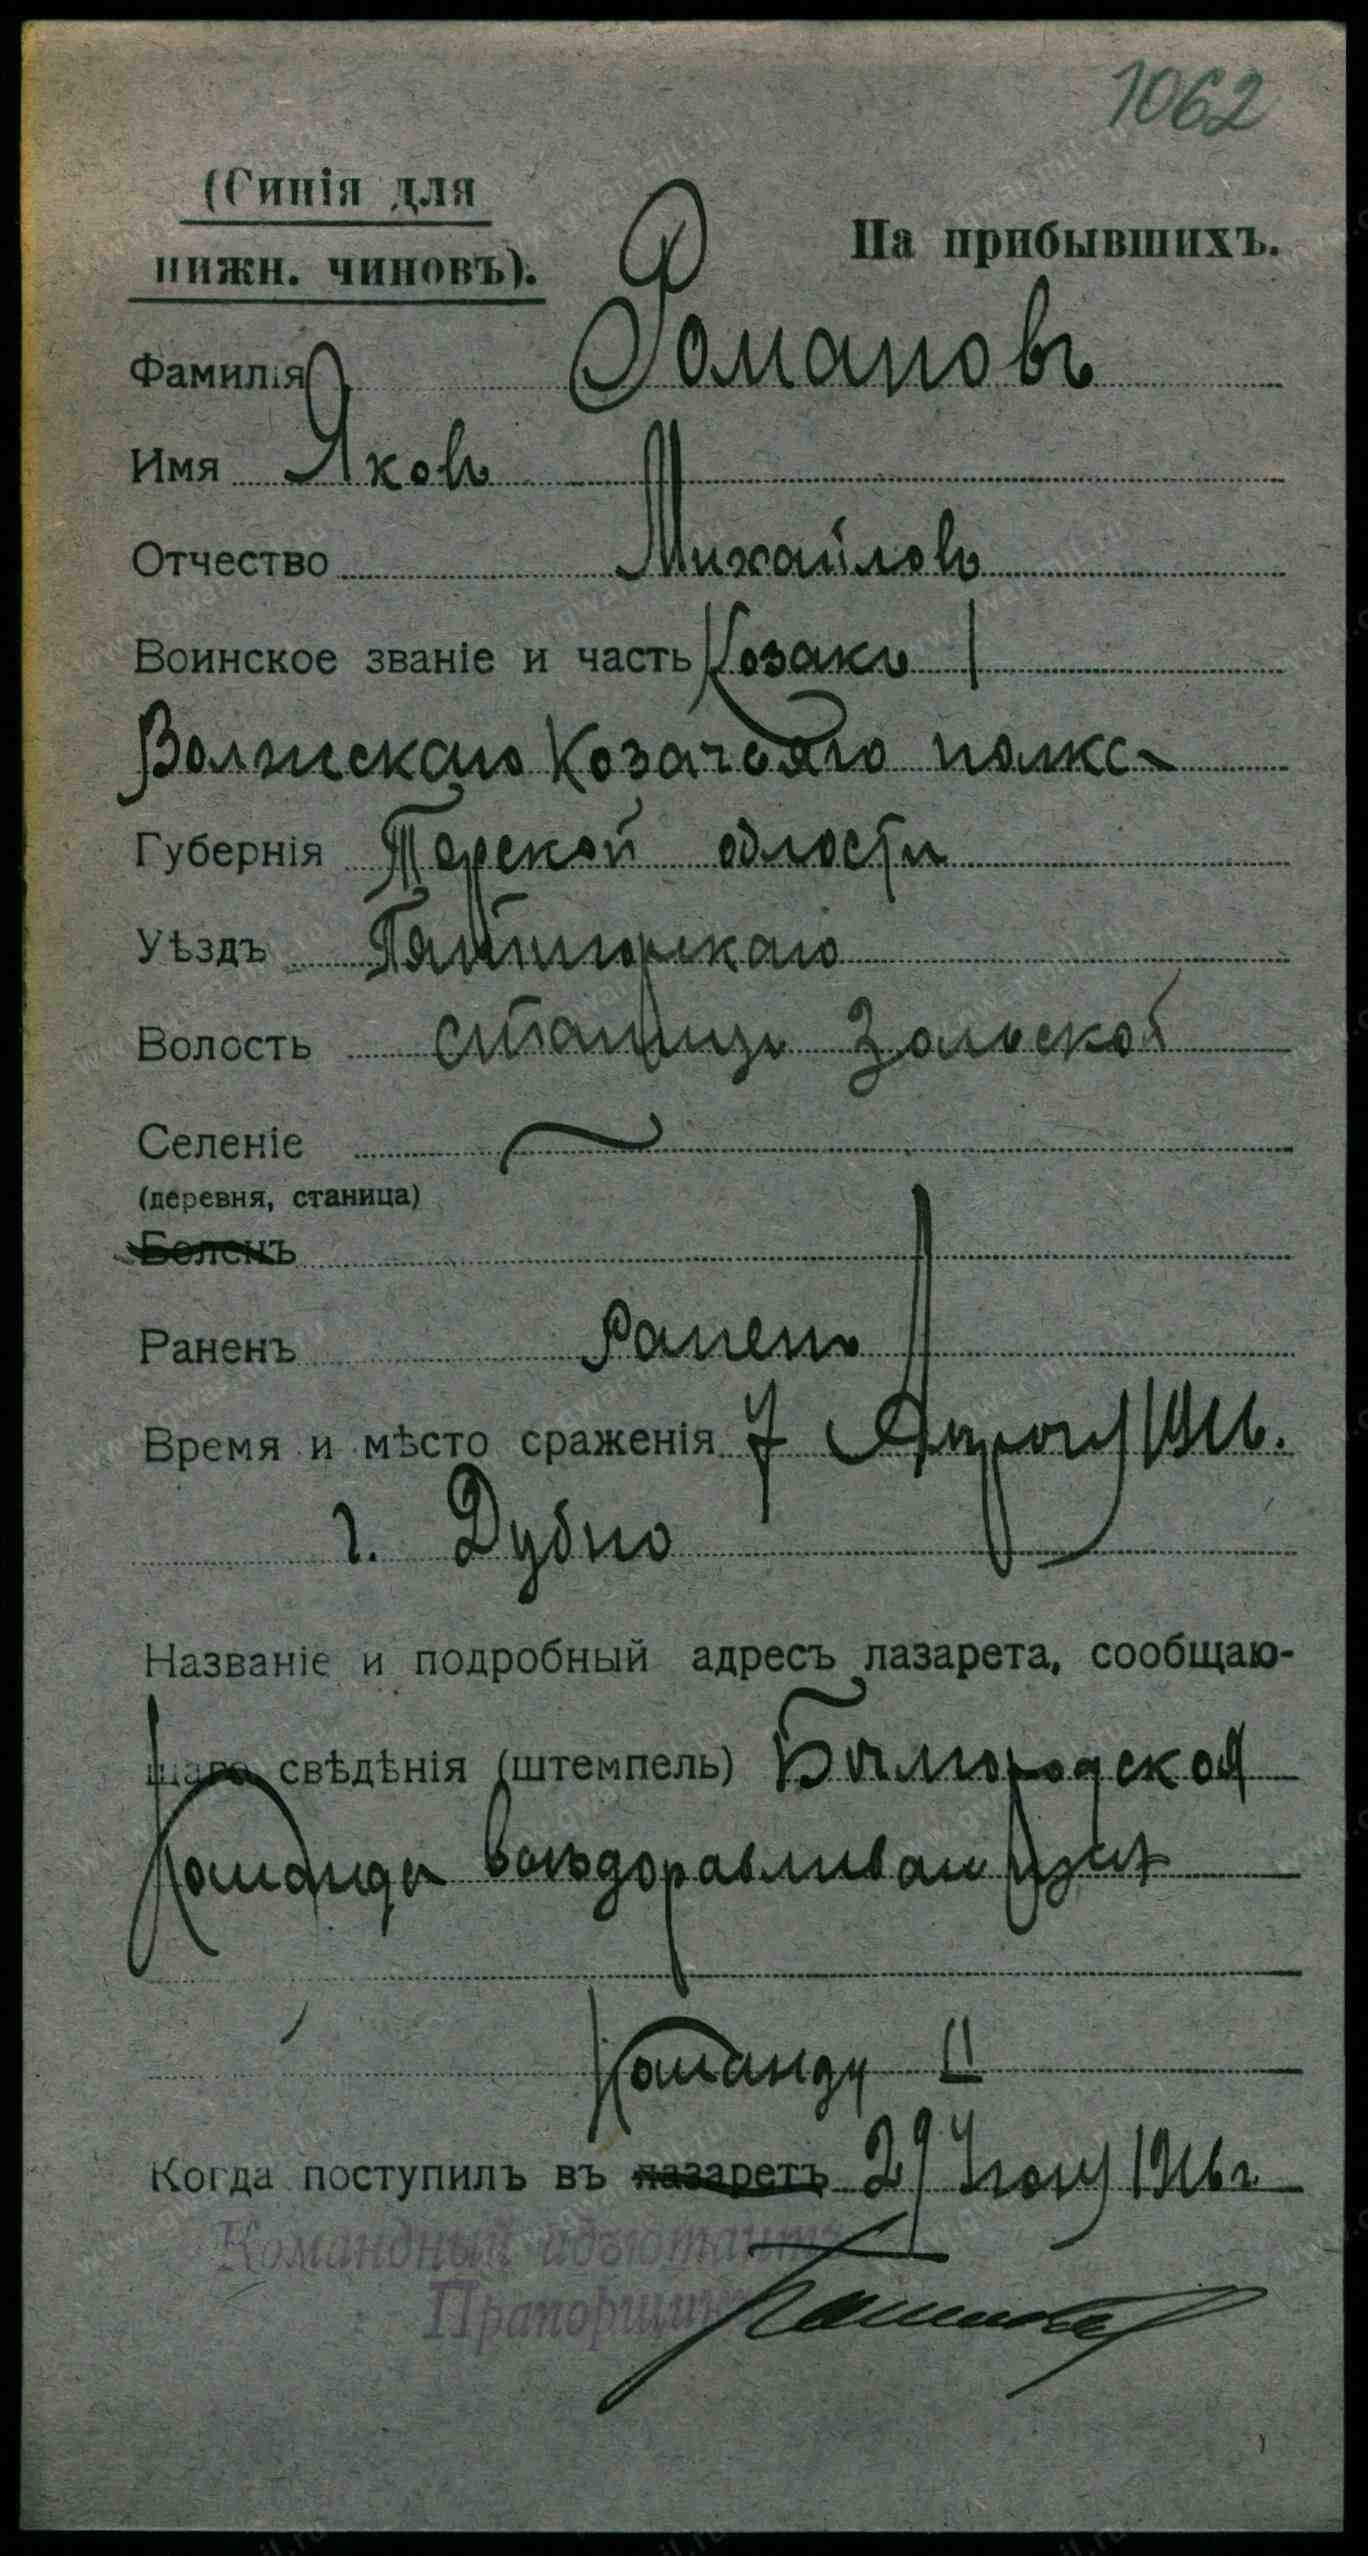 1062
(Синія для
нижн. чиновъ).
На прибывшихъ.
Фамилія Романовъ
Имя Яковъ
Отчество Михайловъ
Воинское званіе и часть Козакъ 1
Волжскаго Козачьяго полка
Губернія Терской области
Уѣздъ Пятигорскаго
Волость станицы Зольской
Селеніе
(деревня, станица)
Боленъ
Раненъ Раненъ
Время и мѣсто сраженія 7 1916.
г. Дубно
Названіе и подробный адресъ лазарета, сообщаю-
щаго свѣдѣнія (штемпель) Бѣлгородской
Команды выздоравливающихъ
Команду II
Когда поступилъ въ лазаретъ 29 1916 г.
Командный адъютантъ
Прапорщикъ